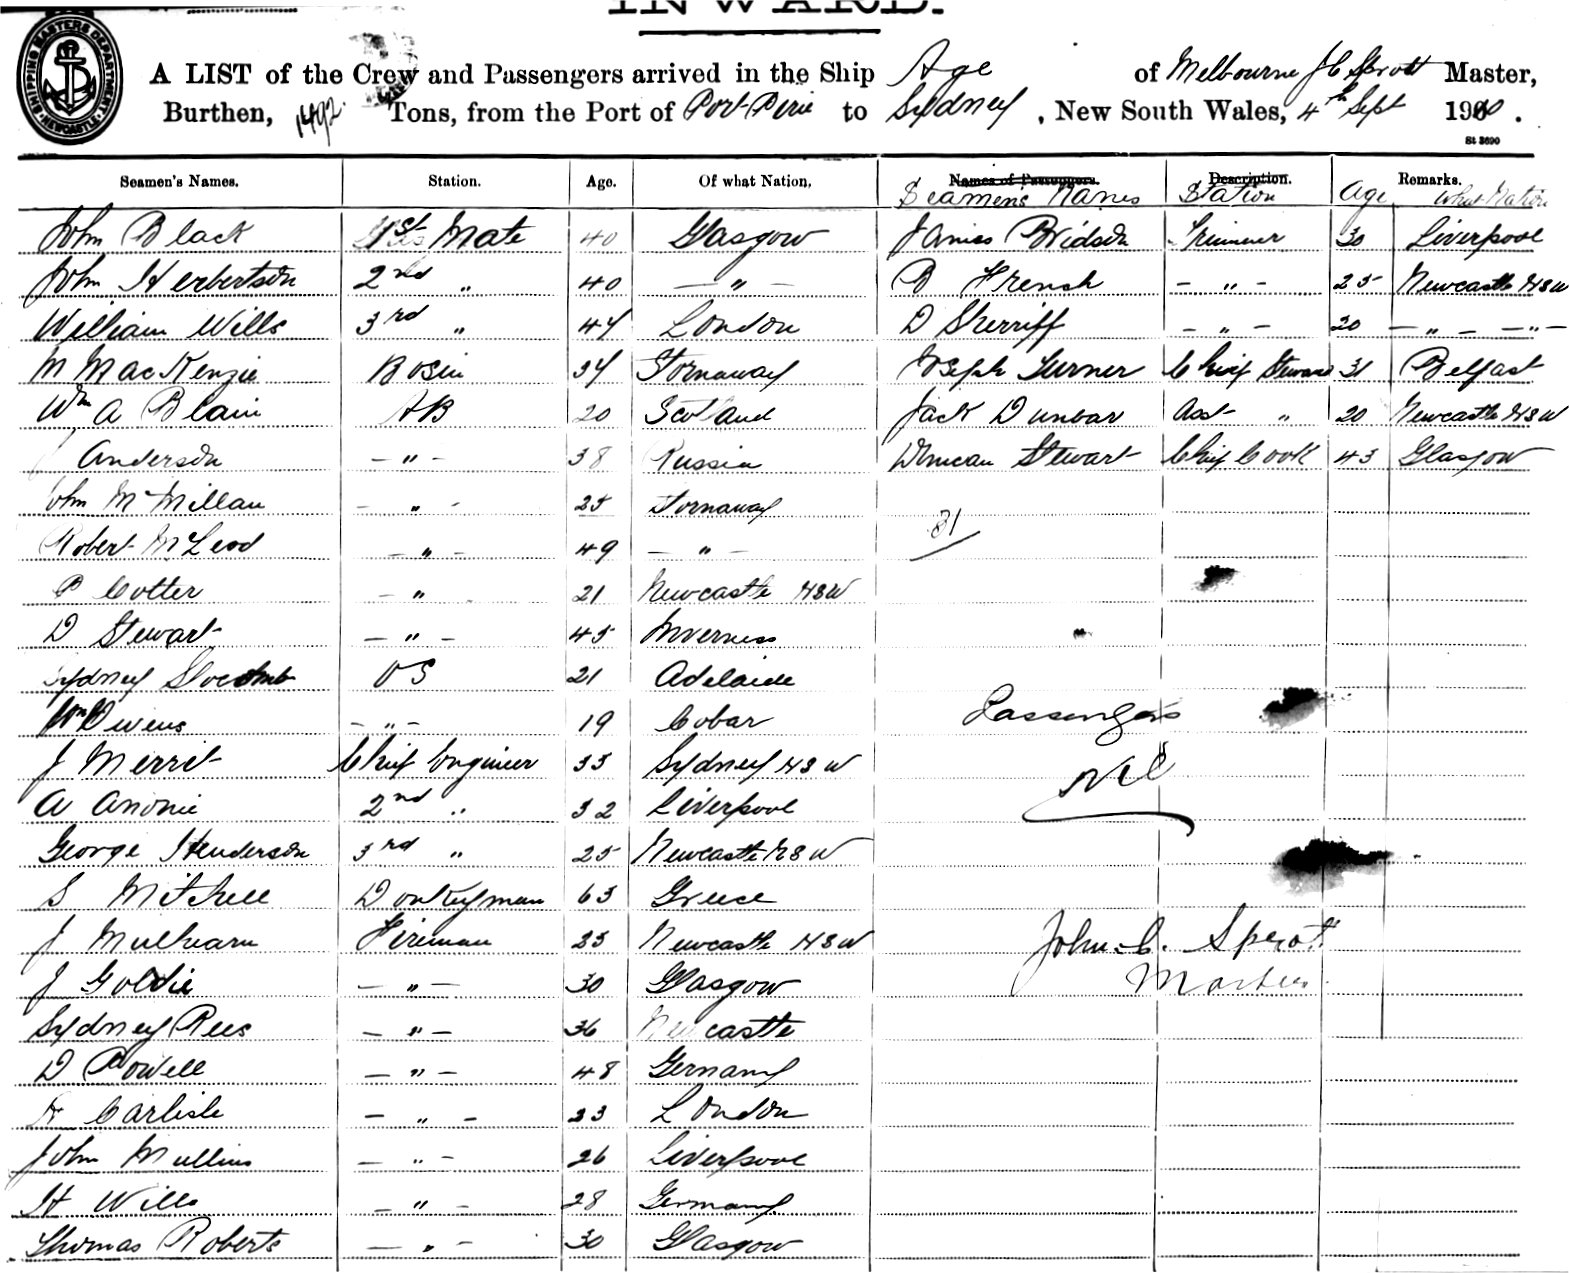 INWARD.
SHIPPING MASTERS DEPARTMENT NEWCASTLE
A LIST of the Crew and Passengers arrived in the Ship Age of Melbourne J C Sprott Master,
Burthen, 1492 Tons, from the Port of Port Pirie to Sydney, New South Wales, 4th Sept 1900.
St 3690
Seamen's Names. Station. Age. Of what Nation, Names of Passengers. Description. Remarks.
Seamens Names Station Age what Nation
John Black 1st Mate 40 Glasgow James Bridson Trimmer 30 Liverpool
John Herbertson 2nd " 40 — " — B French — " — 25 Newcastle NSW
William Wills 3rd " 44 London D Sherriff — " — 20 — " — — " —
M MacKenzie Bosin 34 Stornaway Joseph Turner Chief Steward 31 Belfast
Wm A Blain AB 20 Scotland Jack Dunbar Asst " 20 Newcastle NSW
Anderson — " — 38 Russia Duncan Stewart Chief Cook 43 Glasgow
John McMillan — " — 25 Stornaway
31
Robert McLeod — " — 49 — " —
P Cotter — " 21 Newcastle NSW
D Stewart — " — 45 Inverness
Sydney Slocomb OS 21 Adelaide
Wm Owens — " — 19 Cobar Passengers
J Merrit Chief Engineer 33 Sydney NSW Nil
A 2nd " 32 Liverpool
George Henderson 3rd " 25 Newcastle NSW
S Mitchell Donkeyman 63 Greece
J Mulhearn Fireman 25 Newcastle NSW John C. Sprott
J Goldie — " — 30 Glasgow Master
Sydney Rees — " — 36 Newcastle
D Powell — " — 48 Germany
Carlisle — " — 23 London
John Mullins — " — 26 Liverpool
H Wills — " — 28 Germany
Thomas Roberts — " — 30 Glasgow